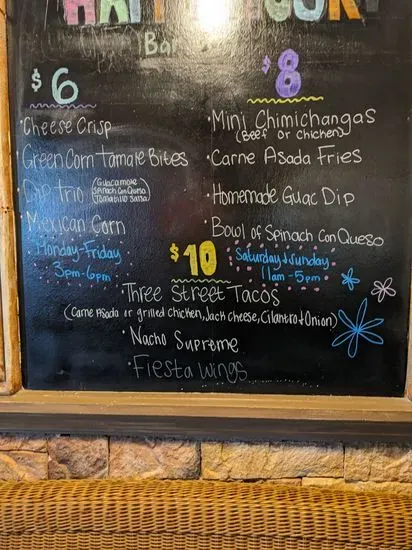 HAPPY HOUR
Bar
$6
Cheese Crisp
Green Corn Tamale Bites
Dip Trio (Guacamole
Spinach Con Queso
Tomatillo Salsa)
Mexican Corn
Monday-Friday
3pm-6pm
$8
Mini Chimichangas
(Beef or chicken)
Carne Asada Fries
Homemade Guac Dip
Bowl of Spinach Con Queso
Saturday & Sunday
11am-5pm
$10
Three Street Tacos
(Carne Asada or grilled chicken, Jack cheese, Cilantro & Onion)
Nacho Supreme
Fiesta Wings